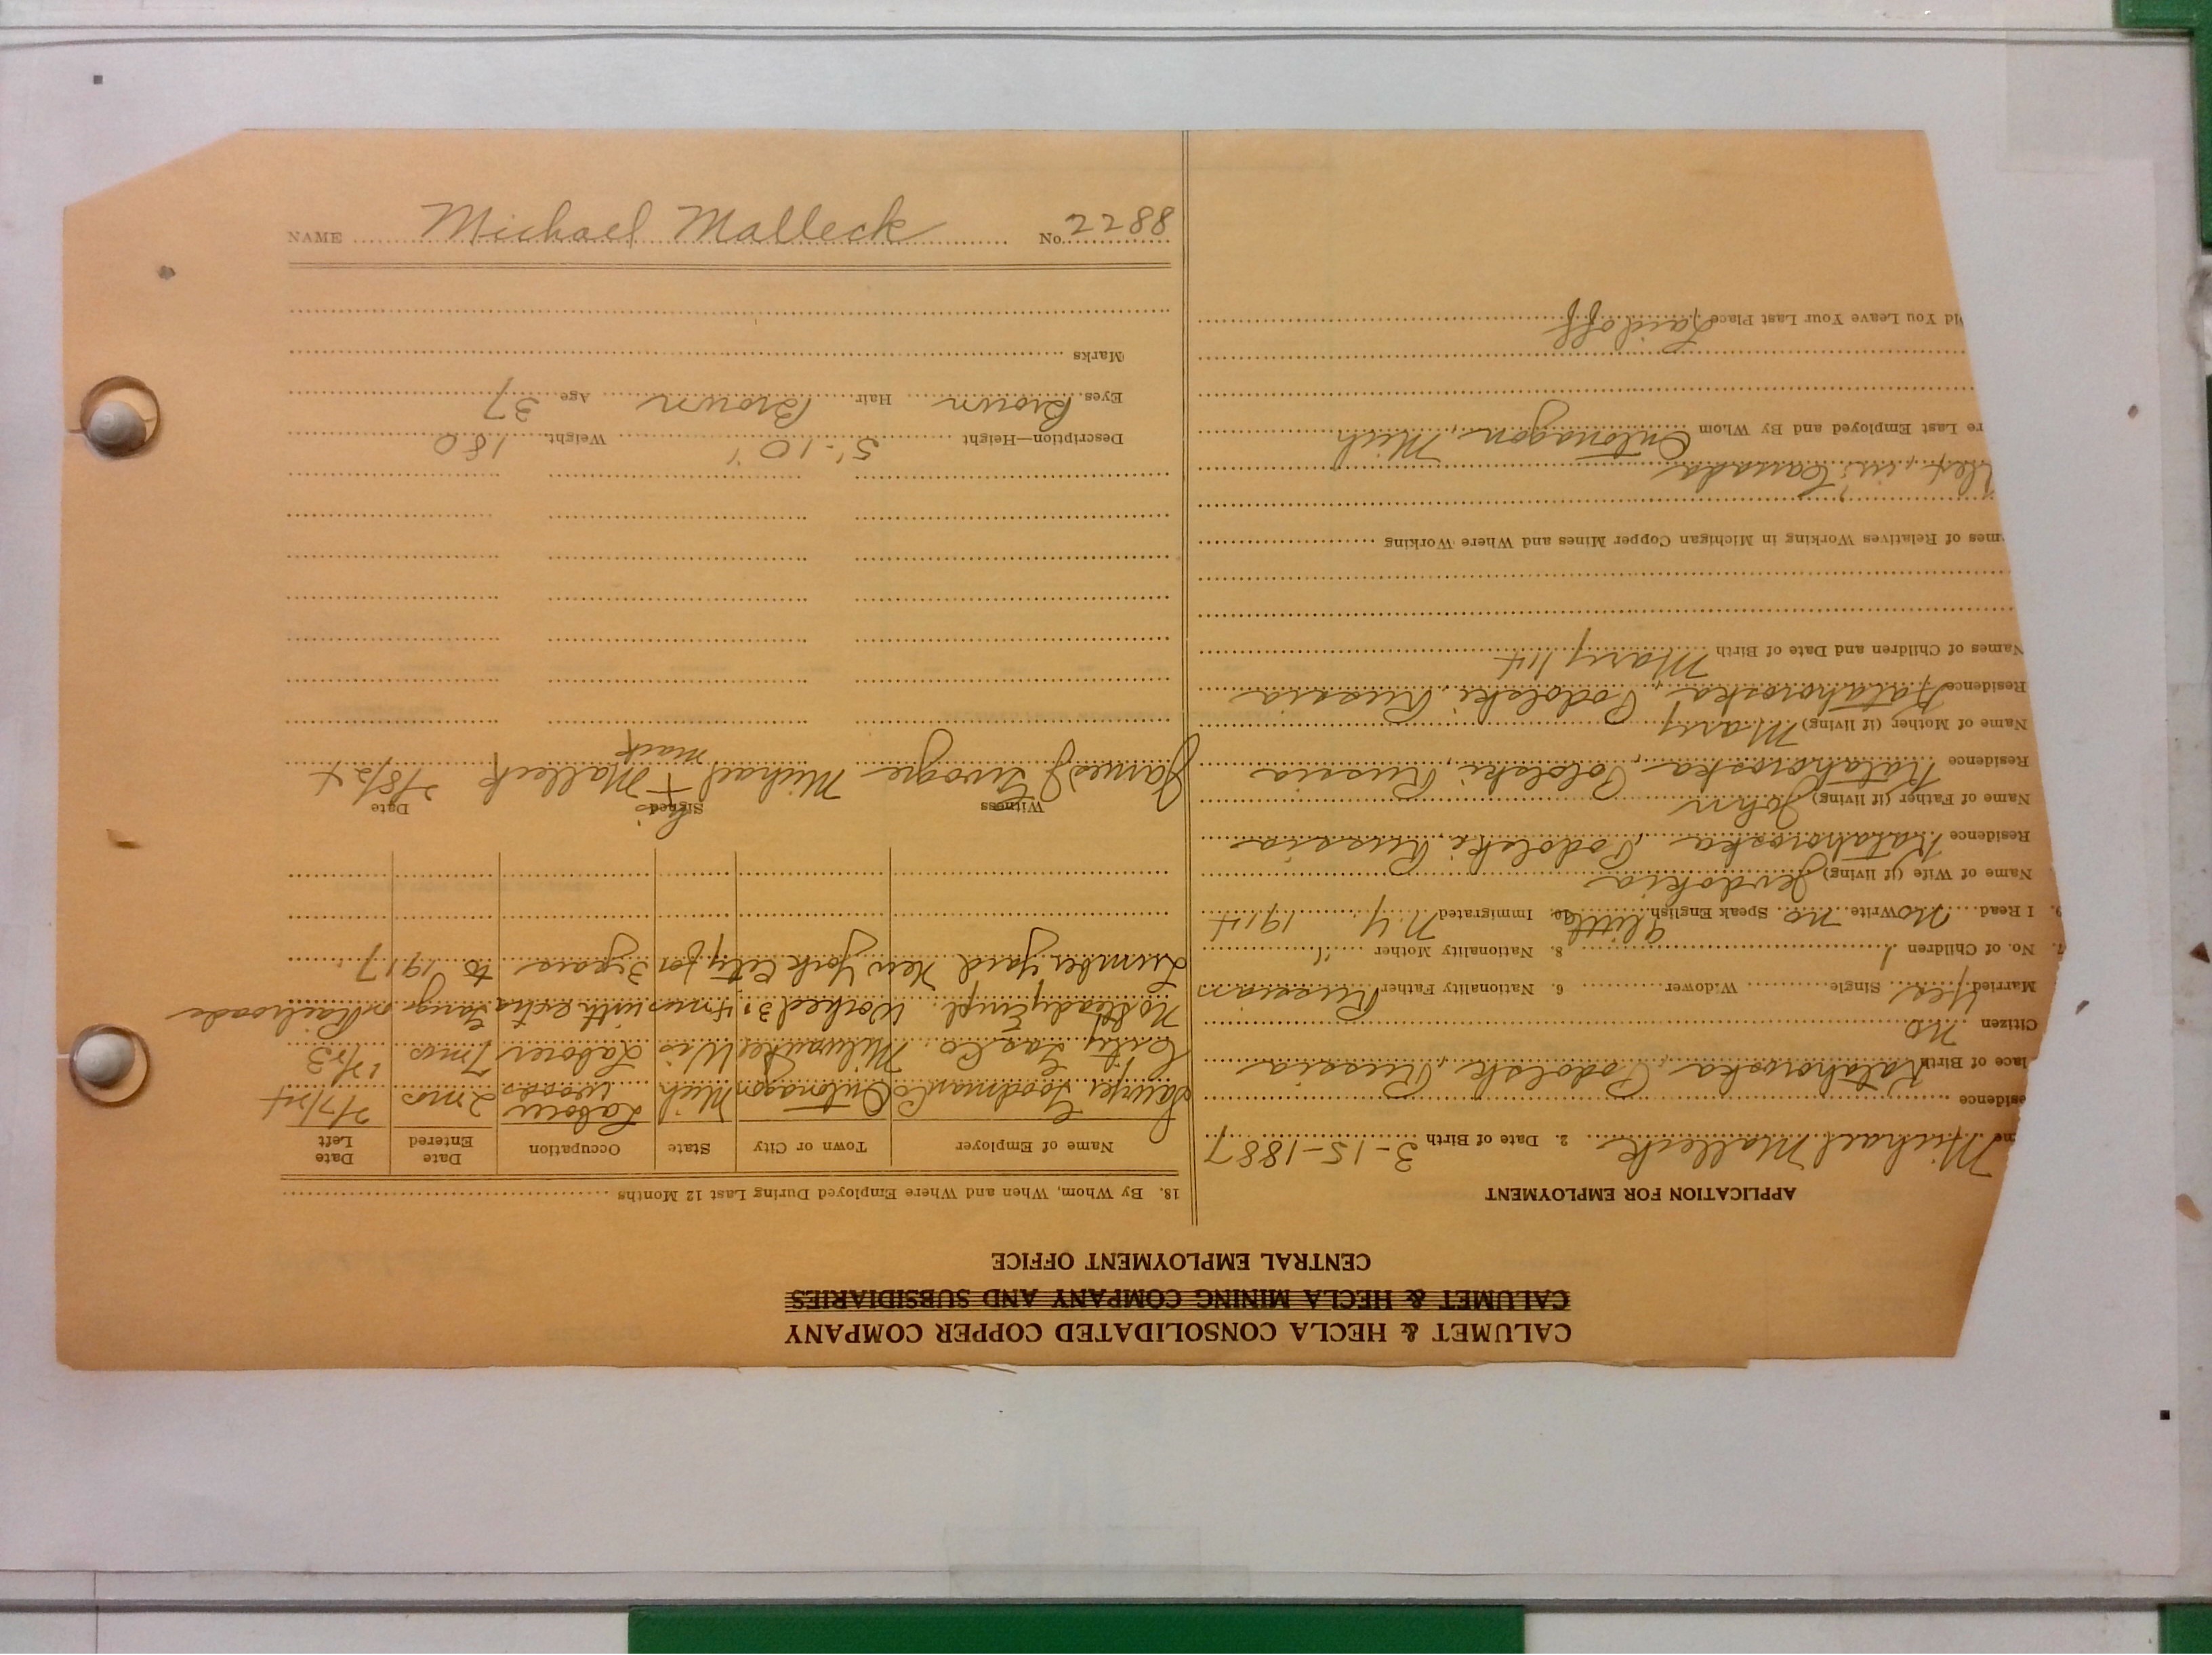 NAME Michael Malleck No. 2288
CALUMET & HECLA CONSOLIDATED COPPER COMPANY
CALUMET & HECLA MINING COMPANY AND SUBSIDIARIES
CENTRAL EMPLOYMENT OFFICE
APPLICATION FOR EMPLOYMENT
me Michael Malleck 2. Date of Birth 3-15-1887
esidence
lace of Birth Podolsk, Russia
Citizen no
Married yes Single Widower 6. Nationality Father Russian
7. No. of Children 1 8. Nationality Mother "
9. I Read no Write no Speak English a little 10. Immigrated N.Y. 1914
Name of Wife (if living) Jevdokia
Residence Podolski, Russia
Name of Father (if living) John
Residence Podolski, Russia
Name of Mother (if living) Mary
Residence Podolski, Russia
Names of Children and Date of Birth Mary 14
mes of Relatives Working in Michigan Copper Mines and Where Working
in Canada
re Last Employed and By Whom Ontonagon, Mich
id You Leave Your Last Place Laid off
18. By Whom, When and Where Employed During Last 12 Months
Name of Employer Town or City State Occupation Date Entered Date Left
Sawyer Goodman Co Ontonagon Mich Laborer woods 2 mos 2/7/24
City Gas Co. Milwaukee Wis Laborer 7 mos 12/23
No steady Empl. Worked 3, 4 mos with extra gangs on Railroads
Lumber Yard New York City for 3 years to 1917
Witness Signed Date
his
James J Michael + Malleck 2/8/24
mark
Description—Height 5'-10" Weight 180
Eyes Brown Hair Brown Age 37
Marks